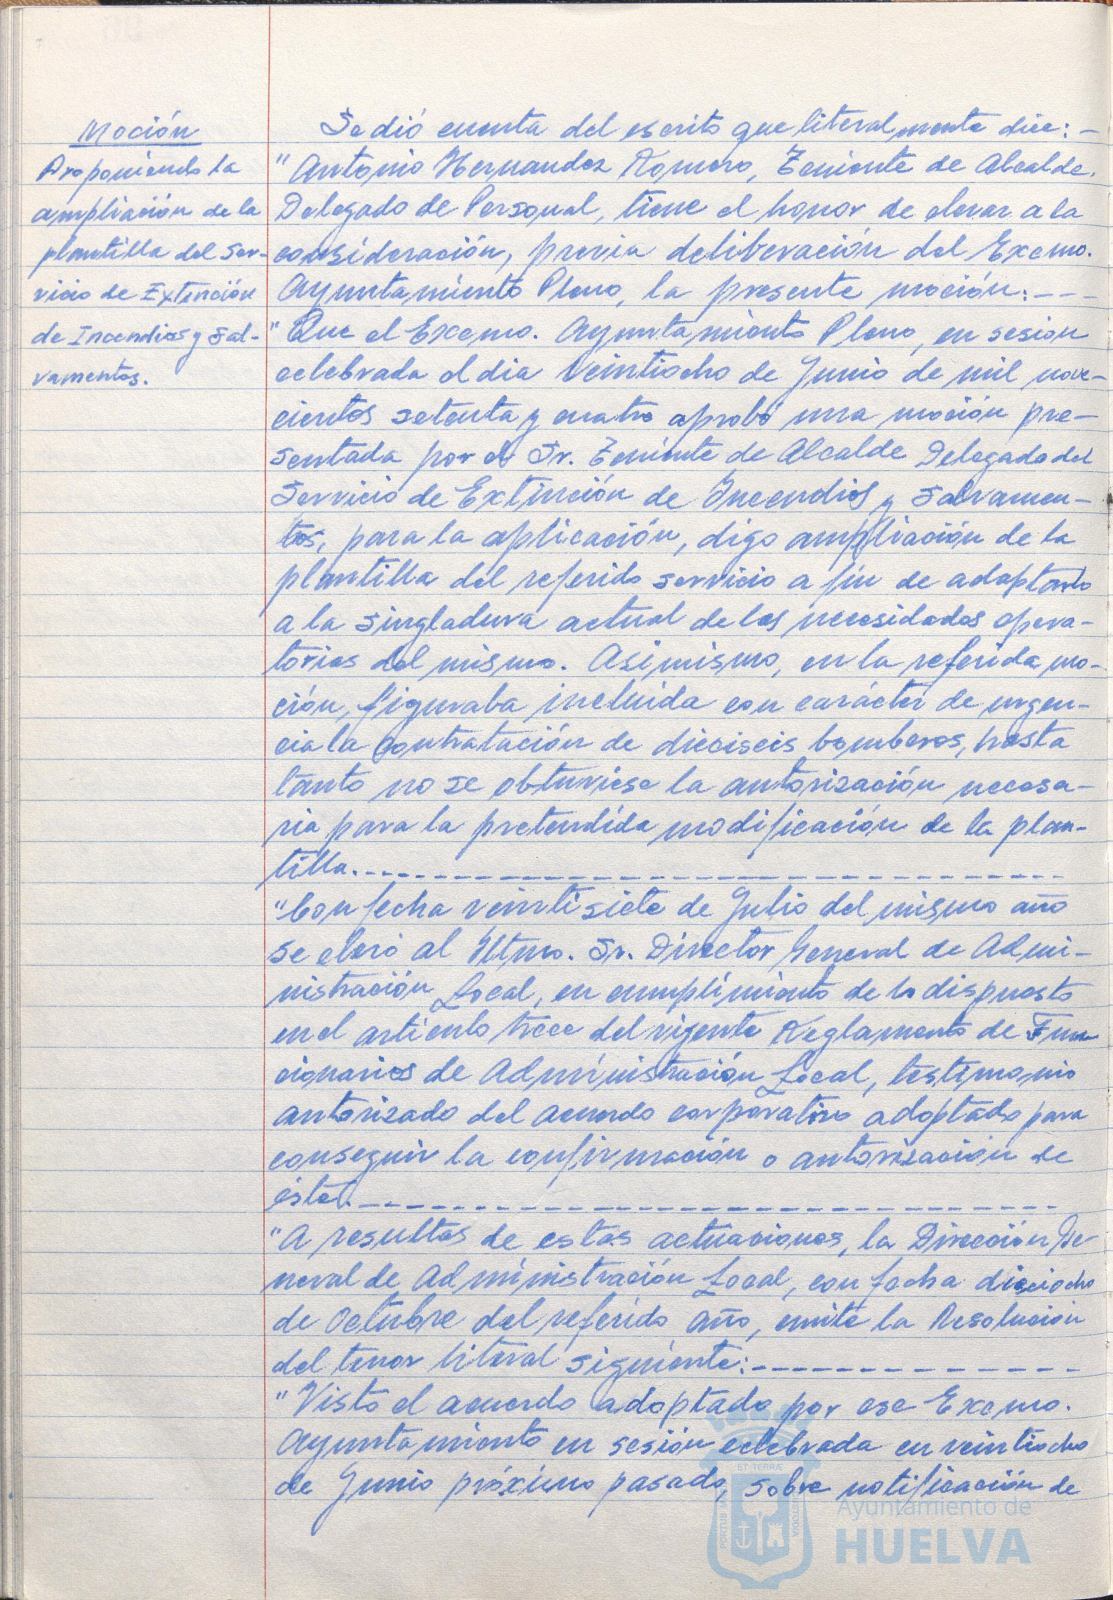 Moción
Proponiendo la
ampliación de la
plantilla del Ser-
vicio de Extinción
de Incendios y Sal-
vamentos.
Se dió cuenta del escrito que literalmente dice: -
"Antonio Hernandez Romero, Teniente de Alcalde.
Delegado de Personal, tiene el honor de elevar a la
consideración, previa deliberación del Excmo.
Ayuntamiento Pleno, la presente moción: - - -
"Que el Excmo. Ayuntamiento Pleno, en sesión
celebrada el dia Veintiocho de Junio de mil nove-
cientos setenta y cuatro aprobó una moción pre-
sentada por el Sr. Teniente de Alcalde Delegado del
Servicio de Extinción de Incendios y Salvamen-
tos, para la aplicación, digo ampliación de la
plantilla del referido servicio a fin de adaptarlo
a la singladura actual de las necesidades opera-
torias del mismo. Asimismo, en la referida mo-
ción, figuraba incluida con carácter de urgen-
cia la contratación de dieciseis bomberos, hasta
tanto no se obtuviese la autorización necesa-
ria para la pretendida modificación de la plan-
tilla. - - - - - - - - - - - - - - - - - - - -
"Con fecha veintisiete de Julio del mismo año
se elevó al Iltmo. Sr. Director General de Admi-
nistración Local, en cumplimiento de lo dispuesto
en el artículo trece del vigente Reglamento de Fun-
cionarios de Administración Local, testimonio
autorizado del acuerdo corporativo adoptado para
conseguir la confirmación o autorización de
éste. - - - - - - - - - - - - - - - - - - - -
"A resultas de estas actuaciones, la Dirección Ge-
neral de Administración Local, con fecha dieciocho
de Octubre del referido año, emite la Resolución
del tenor literal siguiente: - - - - - - - - - -
"Visto el acuerdo adoptado por ese Excmo.
Ayuntamiento en sesión celebrada en veintiocho
de Junio próximo pasado, sobre notificación de
ET TERRÆ
PORTUS MARIS
CUSTODIA
Ayuntamiento de
HUELVA